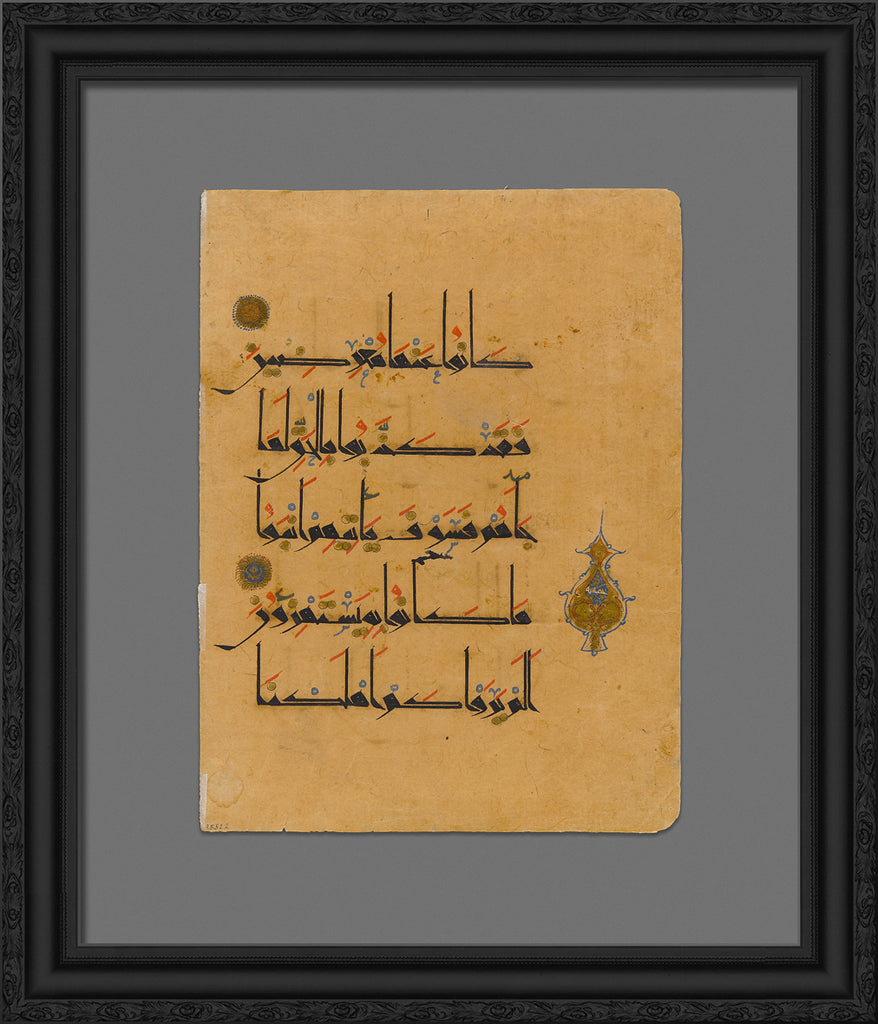 كانوا عنها معرضين
فقد كذبوا بالحق لما
جاءهم فسوف يأتيهم أنبؤا
ما كانوا به يستهزءون
ألم يروا كم أهلكنا